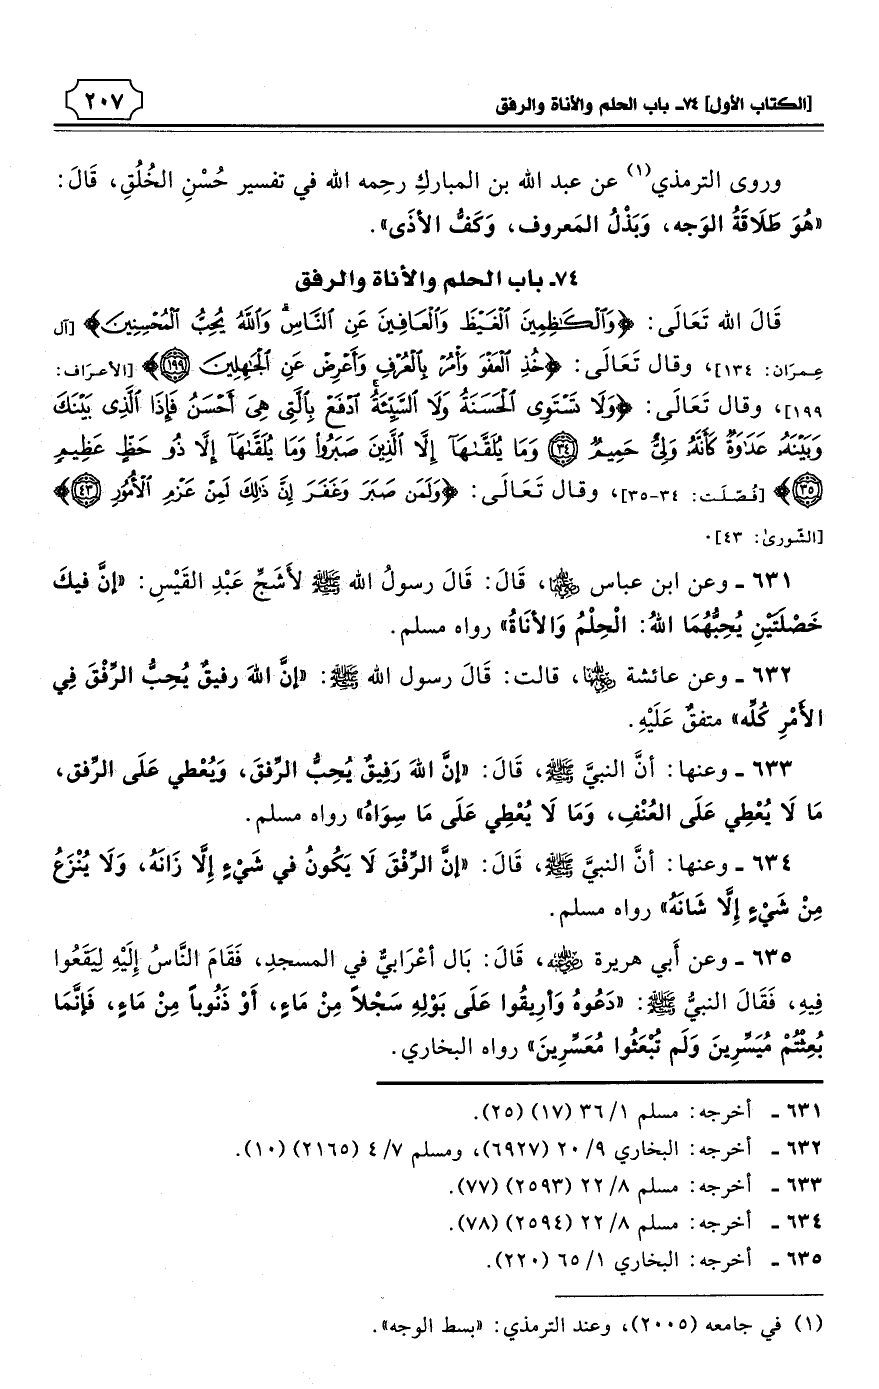 [الكتاب الأول] ٧٤ـ باب الحلم والأناة والرفق ٢٠٧
وروى الترمذي(١) عن عبد الله بن المباركِ رحِمه الله في تفسير حُسْنِ الخُلُقِ، قَالَ:
«هُوَ طَلَاقَةُ الوَجه، وَبَذْلُ المَعروف، وَكَفُّ الأذَى».
٧٤ـ باب الحلم والأناة والرفق
قَالَ الله تَعَالَى: ﴿وَٱلْكَٰظِمِينَ ٱلْغَيْظَ وَٱلْعَافِينَ عَنِ ٱلنَّاسِۗ وَٱللَّهُ يُحِبُّ ٱلْمُحْسِنِينَ﴾ [آل
عِمرَان: ١٣٤]، وقال تَعَالَى: ﴿خُذِ ٱلْعَفْوَ وَأْمُرْ بِٱلْعُرْفِ وَأَعْرِضْ عَنِ ٱلْجَٰهِلِينَ ١٩٩﴾ [الأعرَاف:
١٩٩]، وقال تَعَالَى: ﴿وَلَا تَسْتَوِى ٱلْحَسَنَةُ وَلَا ٱلسَّيِّئَةُۚ ٱدْفَعْ بِٱلَّتِى هِىَ أَحْسَنُ فَإِذَا ٱلَّذِى بَيْنَكَ
وَبَيْنَهُۥ عَدَٰوَةٌ كَأَنَّهُۥ وَلِىٌّ حَمِيمٌ ٣٤ وَمَا يُلَقَّىٰهَآ إِلَّا ٱلَّذِينَ صَبَرُوا۟ وَمَا يُلَقَّىٰهَآ إِلَّا ذُو حَظٍّ عَظِيمٍ
٣٥﴾ [فُصّلَت: ٣٤-٣٥]، وقال تَعَالَى: ﴿وَلَمَن صَبَرَ وَغَفَرَ إِنَّ ذَٰلِكَ لَمِنْ عَزْمِ ٱلْأُمُورِ ٤٣﴾
[الشّورىٰ: ٤٣].
٦٣١ ـ وعن ابن عباس رضي الله عنهما، قَالَ: قَالَ رسولُ الله ﷺ لأَشَجِّ عَبْدِ القَيْسِ: «إنَّ فيكَ
خَصْلَتَيْنِ يُحِبُّهُمَا اللهُ: الْحِلْمُ وَالأنَاةُ» رواه مسلم.
٦٣٢ ـ وعن عائشة رضي الله عنها، قالت: قَالَ رسول الله ﷺ: «إنَّ اللهَ رفيقٌ يُحِبُّ الرِّفْقَ فِي
الأَمْرِ كُلِّه» متفقٌ عَلَيْهِ.
٦٣٣ ـ وعنها: أنَّ النبيَّ ﷺ، قَالَ: «إنَّ اللهَ رَفِيقٌ يُحِبُّ الرِّفقَ، وَيُعْطي عَلَى الرِّفق،
مَا لَا يُعْطِي عَلَى العُنْفِ، وَمَا لَا يُعْطِي عَلَى مَا سِوَاهُ» رواه مسلم.
٦٣٤ ـ وعنها: أنَّ النبيَّ ﷺ، قَالَ: «إنَّ الرِّفْقَ لَا يَكُونُ في شَيْءٍ إلَّا زَانَهُ، وَلَا يُنْزَعُ
مِنْ شَيْءٍ إلَّا شَانَهُ» رواه مسلم.
٦٣٥ ـ وعن أَبي هريرة رضي الله عنه، قَالَ: بَال أعْرَابيٌّ في المسجدِ، فَقَامَ النَّاسُ إِلَيْهِ لِيَقَعُوا
فِيهِ، فَقَالَ النبيُّ ﷺ: «دَعُوهُ وَأَرِيقُوا عَلَى بَوْلِهِ سَجْلاً مِنْ مَاءٍ، أَوْ ذَنُوباً مِنْ مَاءٍ، فَإنَّمَا
بُعِثْتُمْ مُيَسِّرِينَ وَلَم تُبْعَثُوا مُعَسِّرِينَ» رواه البخاري.
٦٣١ ـ أخرجه: مسلم ١/ ٣٦ (١٧) (٢٥).
٦٣٢ ـ أخرجه: البخاري ٩/ ٢٠ (٦٩٢٧)، ومسلم ٧/ ٤ (٢١٦٥) (١٠).
٦٣٣ ـ أخرجه: مسلم ٨/ ٢٢ (٢٥٩٣) (٧٧).
٦٣٤ ـ أخرجه: مسلم ٨/ ٢٢ (٢٥٩٤) (٧٨).
٦٣٥ ـ أخرجه: البخاري ١/ ٦٥ (٢٢٠).
(١) في جامعه (٢٠٠٥)، وعند الترمذي: «بسط الوجه».